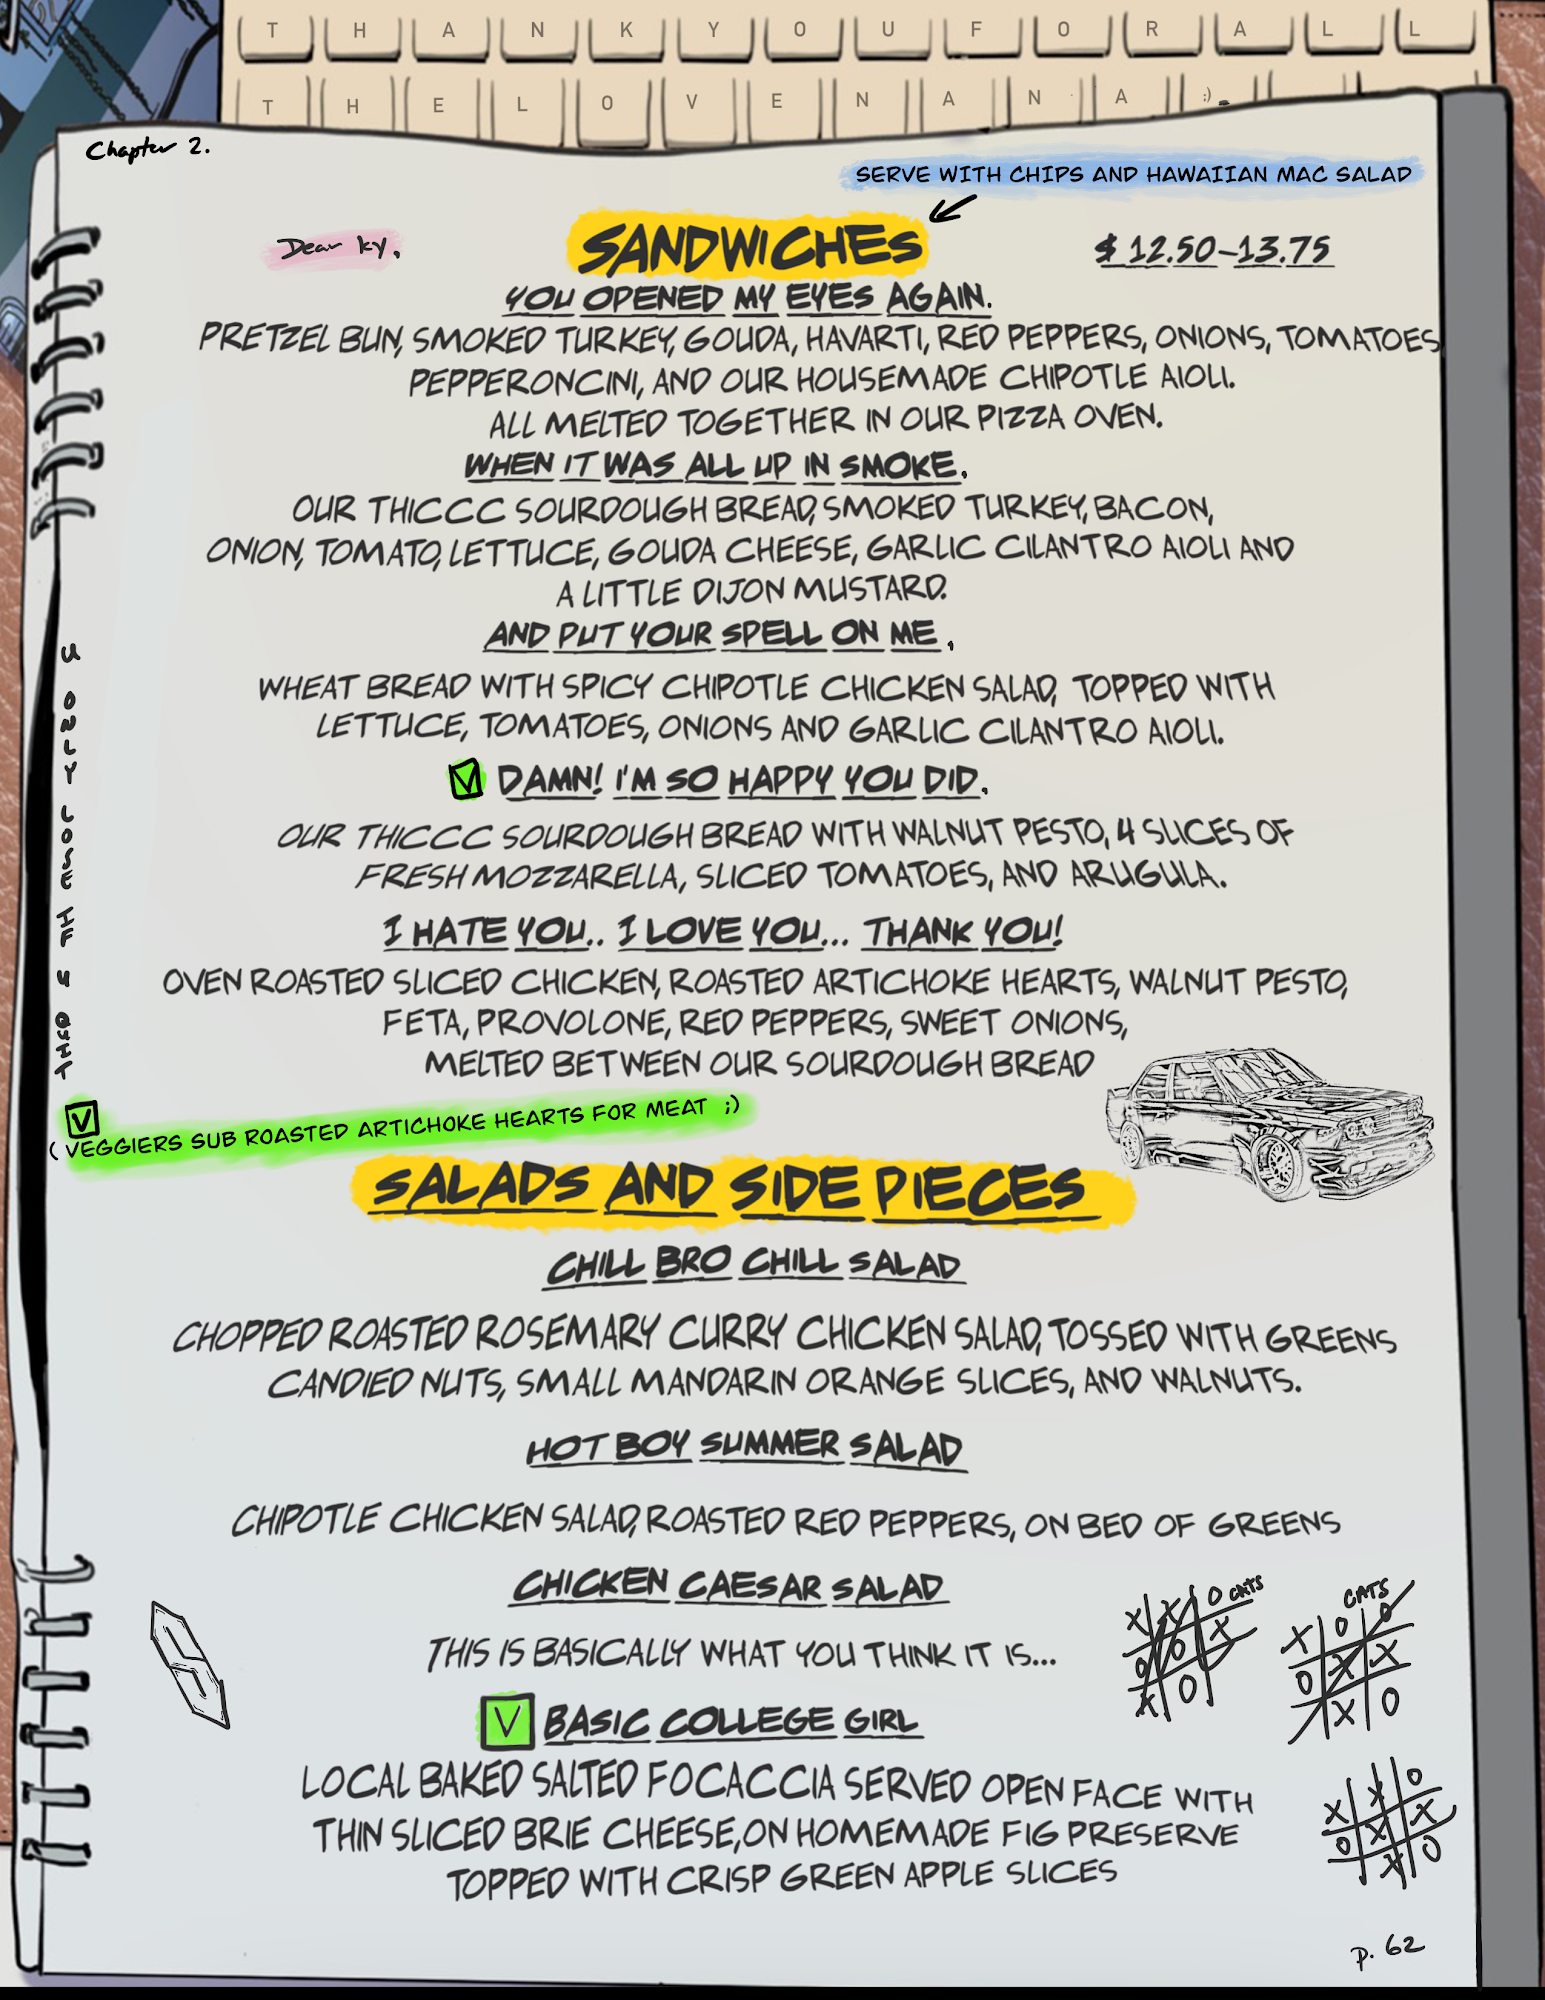 T H A N K Y O U F O R A L L
T H E L O V E N A N A ;)
Chapter 2.
SERVE WITH CHIPS AND HAWAIIAN MAC SALAD
Dear Ky,
SANDWICHES
$ 12.50-13.75
YOU OPENED MY EYES AGAIN.
PRETZEL BUN, SMOKED TURKEY, GOUDA, HAVARTI, RED PEPPERS, ONIONS, TOMATOES
PEPPERONCINI, AND OUR HOUSEMADE CHIPOTLE AIOLI.
ALL MELTED TOGETHER IN OUR PIZZA OVEN.
WHEN IT WAS ALL UP IN SMOKE,
OUR THICCC SOURDOUGH BREAD, SMOKED TURKEY, BACON,
ONION, TOMATO, LETTUCE, GOUDA CHEESE, GARLIC CILANTRO AIOLI AND
A LITTLE DIJON MUSTARD.
AND PUT YOUR SPELL ON ME,
WHEAT BREAD WITH SPICY CHIPOTLE CHICKEN SALAD, TOPPED WITH
LETTUCE, TOMATOES, ONIONS AND GARLIC CILANTRO AIOLI.
V DAMN! I'M SO HAPPY YOU DID.
OUR THICCC SOURDOUGH BREAD WITH WALNUT PESTO, 4 SLICES OF
FRESH MOZZARELLA, SLICED TOMATOES, AND ARUGULA.
I HATE YOU.. I LOVE YOU... THANK YOU!
OVEN ROASTED SLICED CHICKEN, ROASTED ARTICHOKE HEARTS, WALNUT PESTO,
FETA, PROVOLONE, RED PEPPERS, SWEET ONIONS,
MELTED BETWEEN OUR SOURDOUGH BREAD
V
(VEGGIERS SUB ROASTED ARTICHOKE HEARTS FOR MEAT ;)
SALADS AND SIDE PIECES
CHILL BRO CHILL SALAD
CHOPPED ROASTED ROSEMARY CURRY CHICKEN SALAD, TOSSED WITH GREENS
CANDIED NUTS, SMALL MANDARIN ORANGE SLICES, AND WALNUTS.
HOT BOY SUMMER SALAD
CHIPOTLE CHICKEN SALAD, ROASTED RED PEPPERS, ON BED OF GREENS
CHICKEN CAESAR SALAD
THIS IS BASICALLY WHAT YOU THINK IT IS...
V BASIC COLLEGE GIRL
LOCAL BAKED SALTED FOCACCIA SERVED OPEN FACE WITH
THIN SLICED BRIE CHEESE, ON HOMEMADE FIG PRESERVE
TOPPED WITH CRISP GREEN APPLE SLICES
CATS
X X O
O O X
X O
CATS
X O O
O X X
X O
X X O
O X X
X O
p. 62